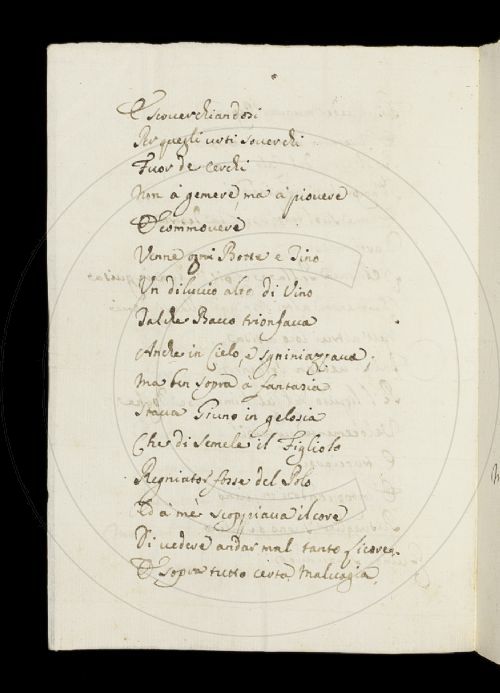 E scouerchiandosi
Per quegli urti souerchi
Fuor de Cerchi
Non à gemere ma à piouere
E commouere
Venne ogni Botte e Tino
Un diluuio alto di Vino
Talche Bacco trionfaua
Anche in Cielo, e sgniniazzaua;
Ma ben sopra à fantasia
Staua Giuno in gelosia
Che di Semele il Figliolo
Regniator fosse del Polo
Ed à me scoppiaua il core
Di vedere andar mal tanto
E sopra tutto certa Maluagia,